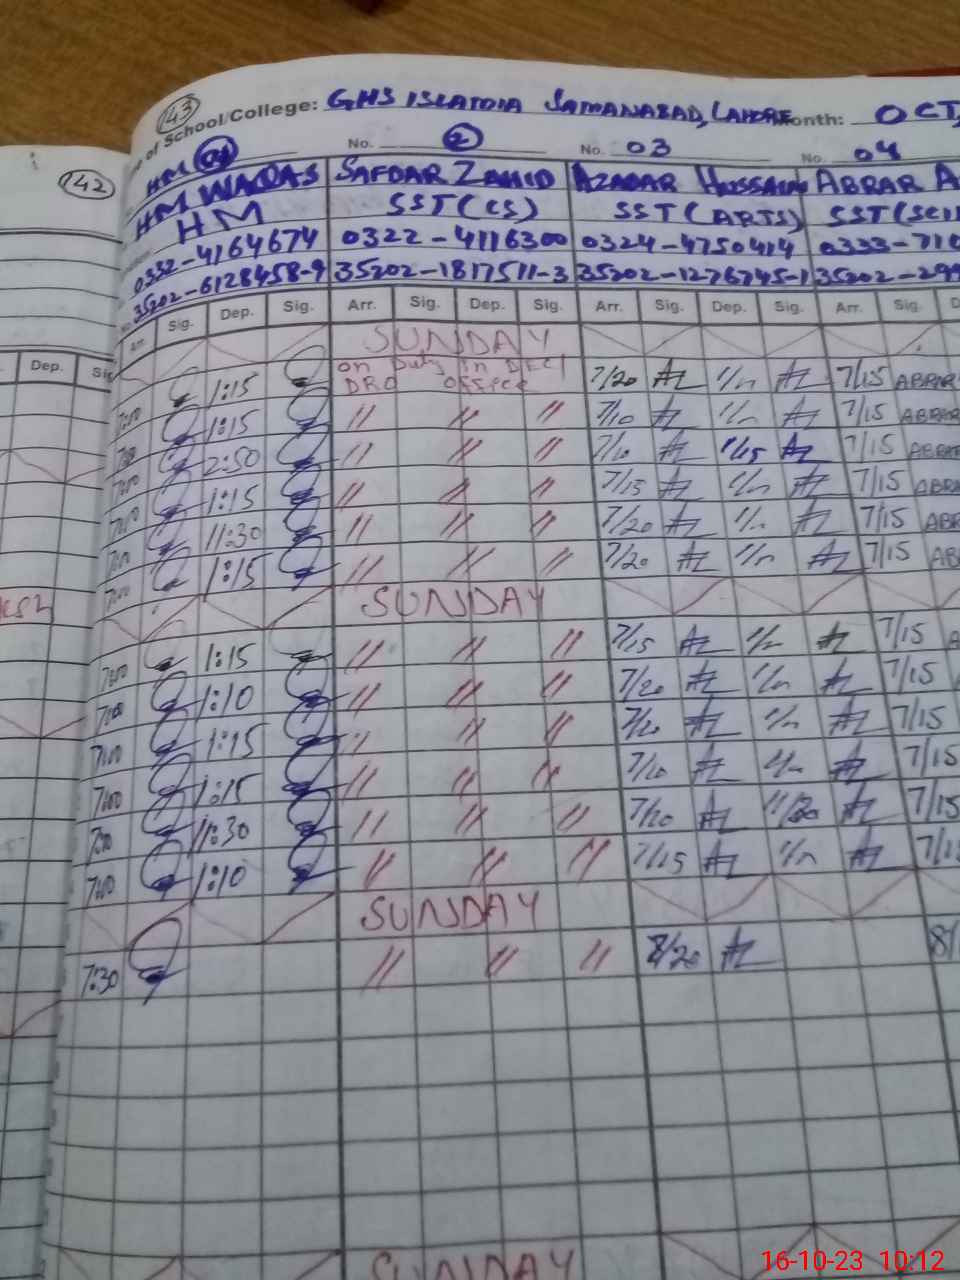 143
of School/College: GHS ISLAMIA SAMANABAD, LAHORE Month: OCT,
142
HM 01 No. 2 No. 03 No. 04
HM WAQAS SAFDAR ZAHID AZADAR HUSSAIN ABRAR A
HM SST(CS) SST(ARTS) SST(SCI
0332-4164674 0322-4116300 0324-4750414 0333-710
35202-6128458-9 35202-1817511-3 35202-1276745-1 35202-299
Arr. Sig. Dep. Sig. Arr. Sig. Dep. Sig. Arr. Sig. Dep. Sig. Arr. Sig. D
Dep. Sig
SUNDAY
1:15 on Duty in DEC/ 7/20 AZ AZ 7/15 ABRAR
DRO OFFICE
1:15 // // // 7/10 AZ AZ 7/15 ABRAR
2:50 // // // AZ 1/15 AZ 7/15 ABRAR
7:00 1:15 // // // 7/15 AZ AZ 7/15 ABRA
7:00 11:30 // // // 7/20 AZ AZ 7/15 ABR
7:00 1:15 // // // 7/20 AZ AZ 7/15 AB
SUNDAY
7:00 1:15 // // // 7/15 AZ AZ 7/15 A
7:00 1:10 // // // 7/20 AZ AZ 7/15
7:00 1:15 // // // 7/20 AZ AZ 7/15
7:00 1:15 // // // 7/20 AZ AZ 7/15
11:30 // // // 7/20 AZ 11/30 AZ 7/15
7:00 1:10 // // // 7/15 AZ AZ 7/1
SUNDAY
7:30 // // // 8/20 AZ 8/
SUNDAY
16-10-23 10:12